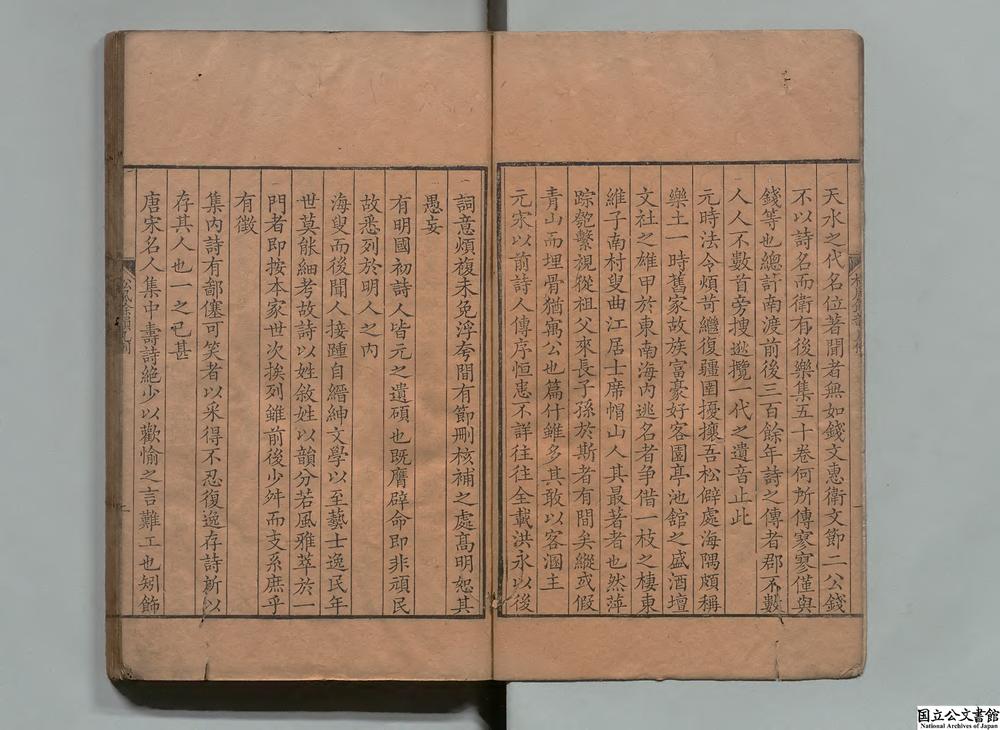 天水之代名位著聞者無如錢文惠衛文節二公錢
不以詩名而衛有後樂集五十卷何所傳寥寥僅與
錢等也總計南渡前後三百餘年詩之傳者郡不數
人人不數首旁搜遐攬一代之遺音止此
元時法令煩苛繼復疆圉擾攘吾松僻處海隅頗稱
樂土一時舊家故族富豪好客園亭池舘之盛酒壇
文社之雄甲於東南海內逃名者争借一枝之棲東
維子南村叟曲江居士席帽山人其最著者也然萍
踪匏繫視從祖父來長子孫於斯者有間矣縱或假
青山而埋骨猶寓公也篇什雖多其敢以客溷主
元宋以前詩人傳序恒患不詳往往全載洪永以後
詞意煩複未免浮夸間有節刪核補之處高明恕其
愚妄
有明國初詩人皆元之遺碩也既膺辟命即非頑民
故悉列於明人之內
海叟而後聞人接踵自縉紳文學以至藝士逸民年
世莫能細考故詩以姓敘姓以韻分若風雅萃於一
門者即按本家世次挨列雖前後少舛而支系庶乎
有徵
集內詩有鄙僿可笑者以采得不忍復逸存詩所以
存其人也一之已甚
唐宋名人集中壽詩絶少以歡愉之言難工也矧飾
国立公文書館
National Archives of Japan